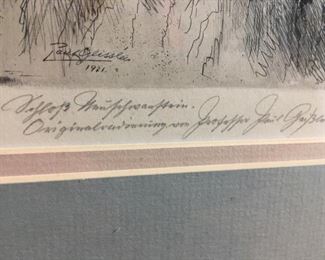 Paul Geissler
1921.
Schloß Neuschwanstein.
Originalradierung von Professor Paul Geißler